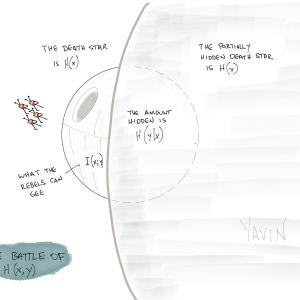 THE DEATH STAR
IS H(X)
THE PARTIALLY
HIDDEN DEATH STAR
IS H(Y)
THE AMOUNT
HIDDEN IS
H(Y|X)
I(X;Y)
WHAT THE
REBELS CAN
SEE
YAVIN
BATTLE OF
H(X,Y)